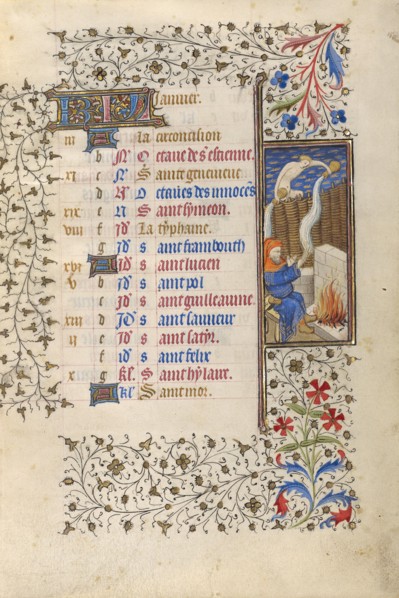 KL Januier.
iii A La circoncision
b N O ctaue de s estienne.
xi c N S ainte geneuieue
d N O ctaues des innocẽs
xix e N S aint symeon.
viii f Nõ La typhaine.
g id S aint frambouth
xvi A id S aint lucien
v b id S aint pol
c id S aint guilleaume.
xiii d id S aint sauueur
ii e id S aint satyr.
f id S aint felix
g kl S aint hylaire.
A kl S aint mor.